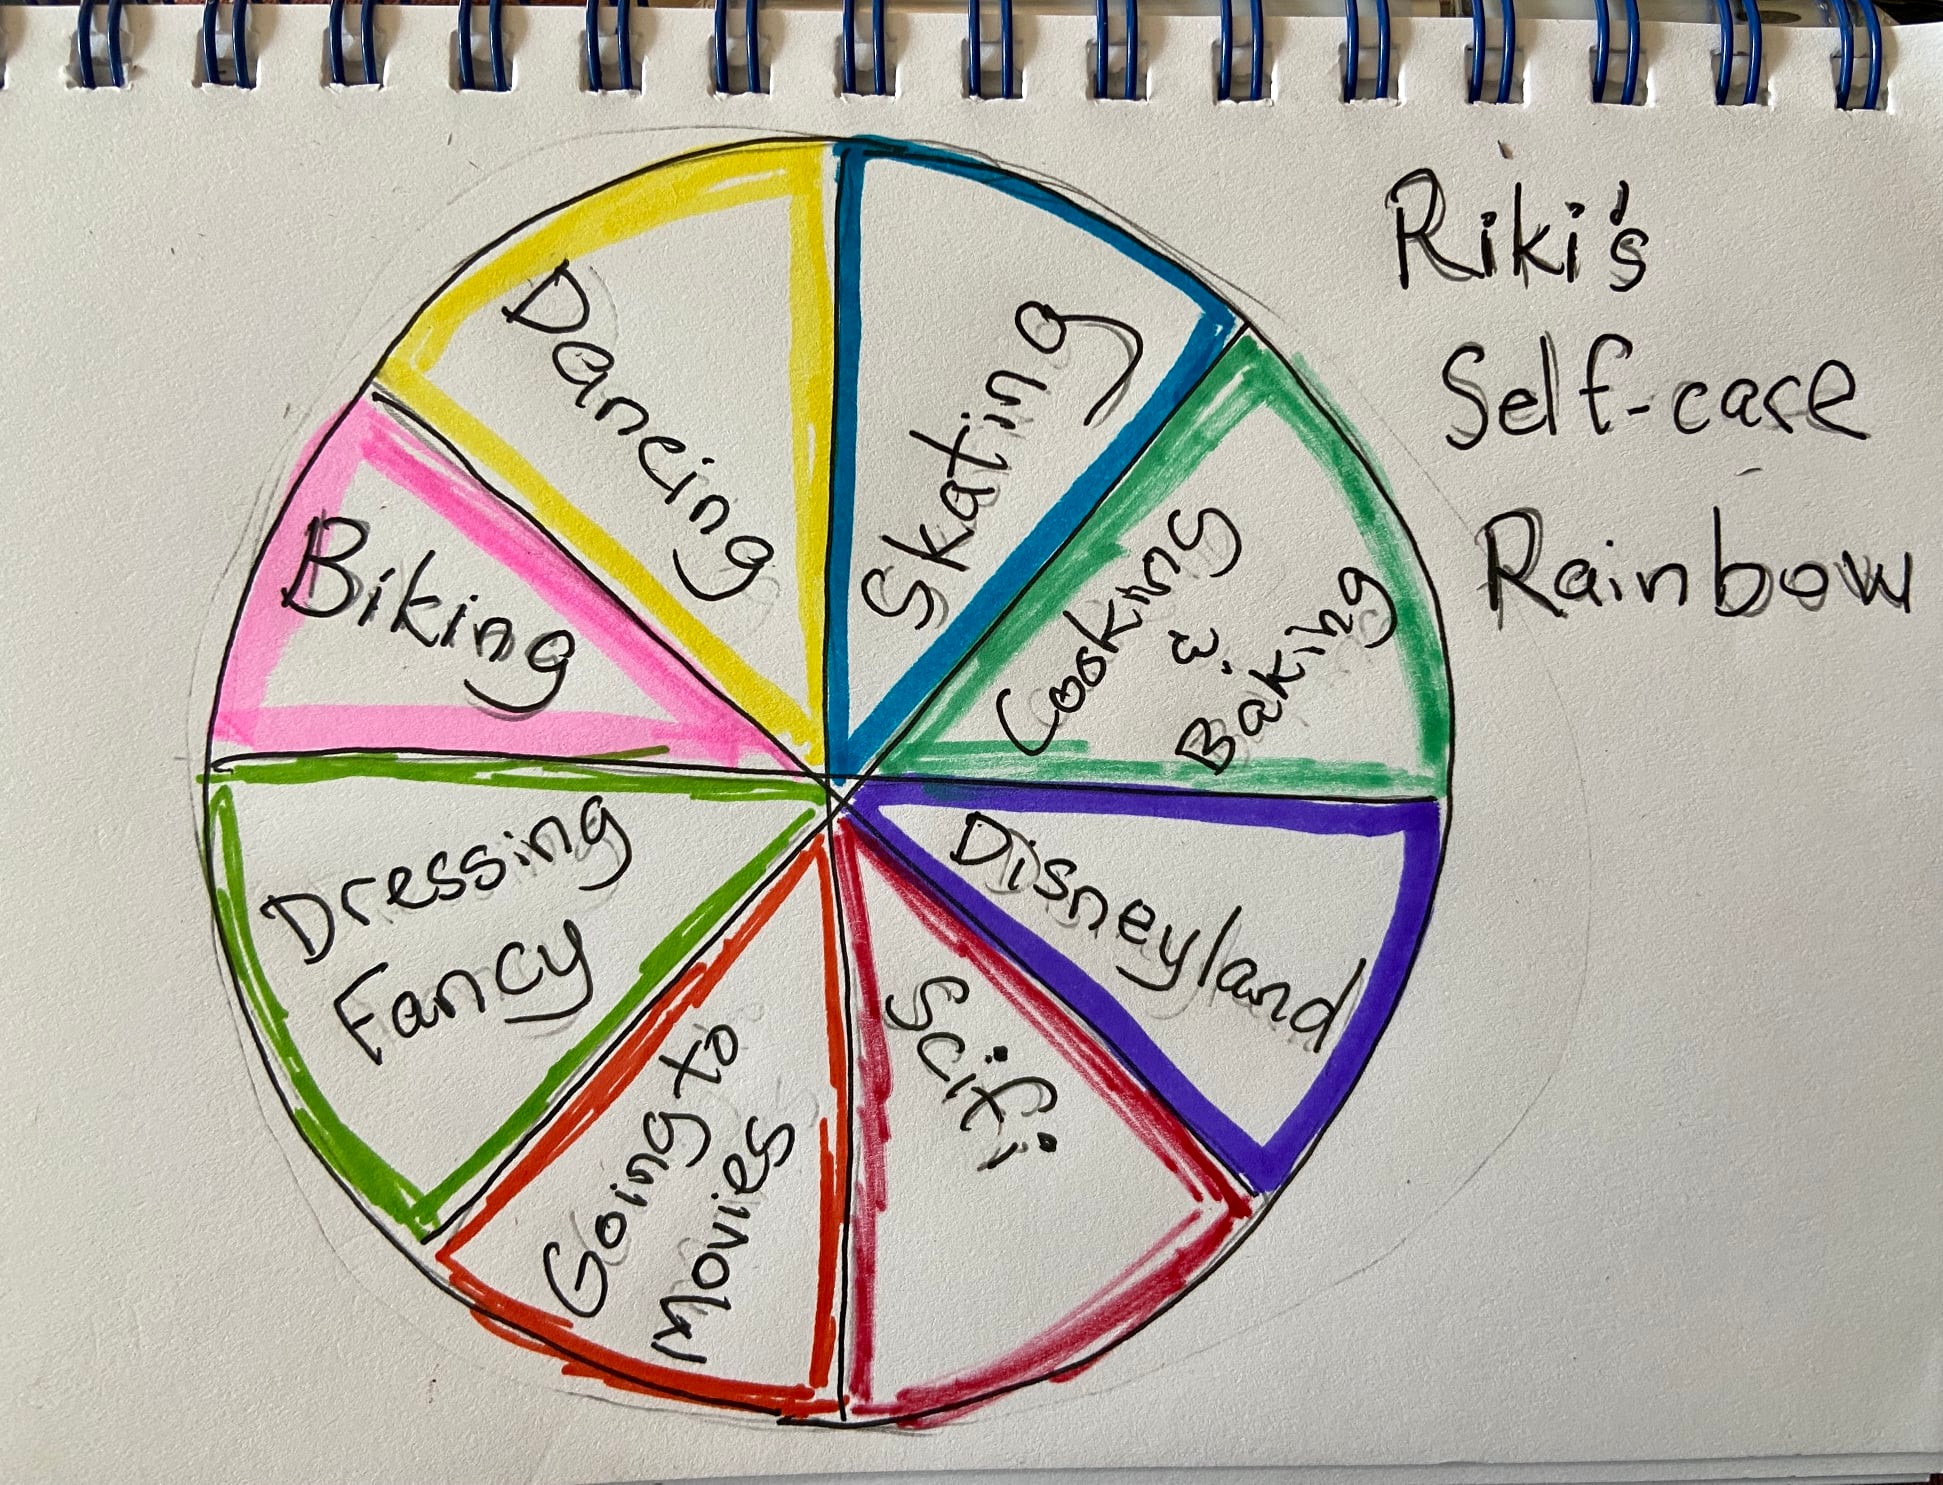 Riki's
Self-care
Rainbow
Skating
Cooking
&
Baking
Disneyland
Scifi
Going to
Movies
Dressing
Fancy
Biking
Dancing